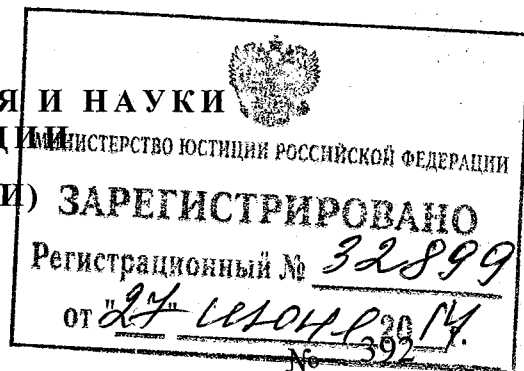 Я И НАУКИ
ЦИИ
МИНИСТЕРСТВО ЮСТИЦИИ РОССИЙСКОЙ ФЕДЕРАЦИИ
И)
ЗАРЕГИСТРИРОВАНО
Регистрационный № 32899
от "27" июня 2014.
№ 392